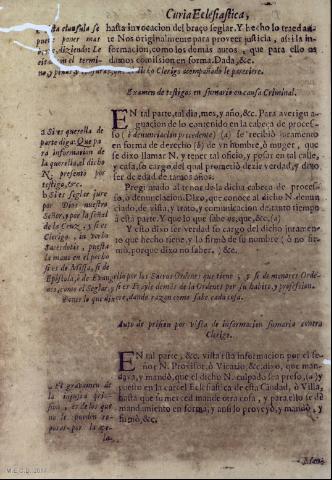 Curia Eclesiastica,
hasta invocacion del braço seglar. Y hecho lo traed ante
Nos originalmente para proveer justicia, assi la informacion,
como los demàs autos, que para ello os
damos comission en forma. Dada, &c.
Esta clausula se
puede poner mas
breve, diziendo: Le
Examen de testigos en sumario en causa Criminal.
EN tal parte, tal dia, mes, y año, &c. Para averiguacion
de lo contenido en la cabeça de processo
(ò denunciacion precedente) (a) se recibiò juramento
en forma de derecho (b) de vn hombre, ò muger, que
se dixo llamar N. y tener tal oficio, y posar en tal calle,
y casa, so cargo del qual prometiò dezir verdad, y dixo
ser de edad de tantos años.
Preguntado al tenor de la dicha cabeça de processo,
o denunciacion: Dixo, que conoce al dicho N. denunciado,
de vista, y trato, y comunicacion de tanto tiempo
à esta parte. Y que lo que sabe es, que, &c. (a)
Y esto dixo ser verdad so cargo del dicho juramento
que hecho tiene, y lo firmò de su nombre (ò no firmò,
porque dixo no saber.) &c.
a Si es querella de
parte diga: Que para
informacion de
la querella, el dicho
N. presentò por
testigo, &c.
b Si es seglar jure
por Dios nuestro
Señor, y por la señal
de la Cruz, y si es
Clerigo, in verbo
Sacerdotis, puesta
la mano en el pecho
si es de Missa, si de
Epistola, ò de Evangelio
por los Sacros Ordenes que tiene, y si de menores Ordenes,
como el Seglar, y si es Frayle demàs de la Orden por su habito, y profession.
Auto de prision por vista de informacion sumaria contra
Clerigo.
EN tal parte, &c. vista esta informacion por el señor
N. Provisor, ò Vicario &c. dixo, que mandava,
y mandò, que el dicho N. culpado sea preso, (a) y
puesto en la carcel Eclesiastica de esta Ciudad, ò Villa,
hasta que su merced mande otra cosa, y para ello se dè
mandamiento en forma, y assi lo proveyò, mandò, y
firmò, &c.
a El gravamen de
la injusta prision,
es de los que
no se pueden reparar
por la apela.
M.E.C.D. 2017